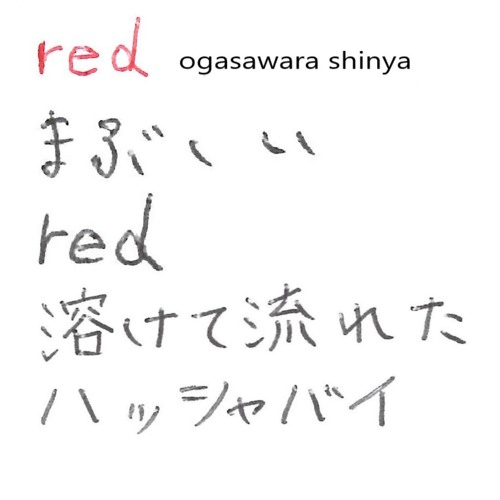 red ogasawara shinya
まぶしい
red
溶けて流れた
ハッシャバイ